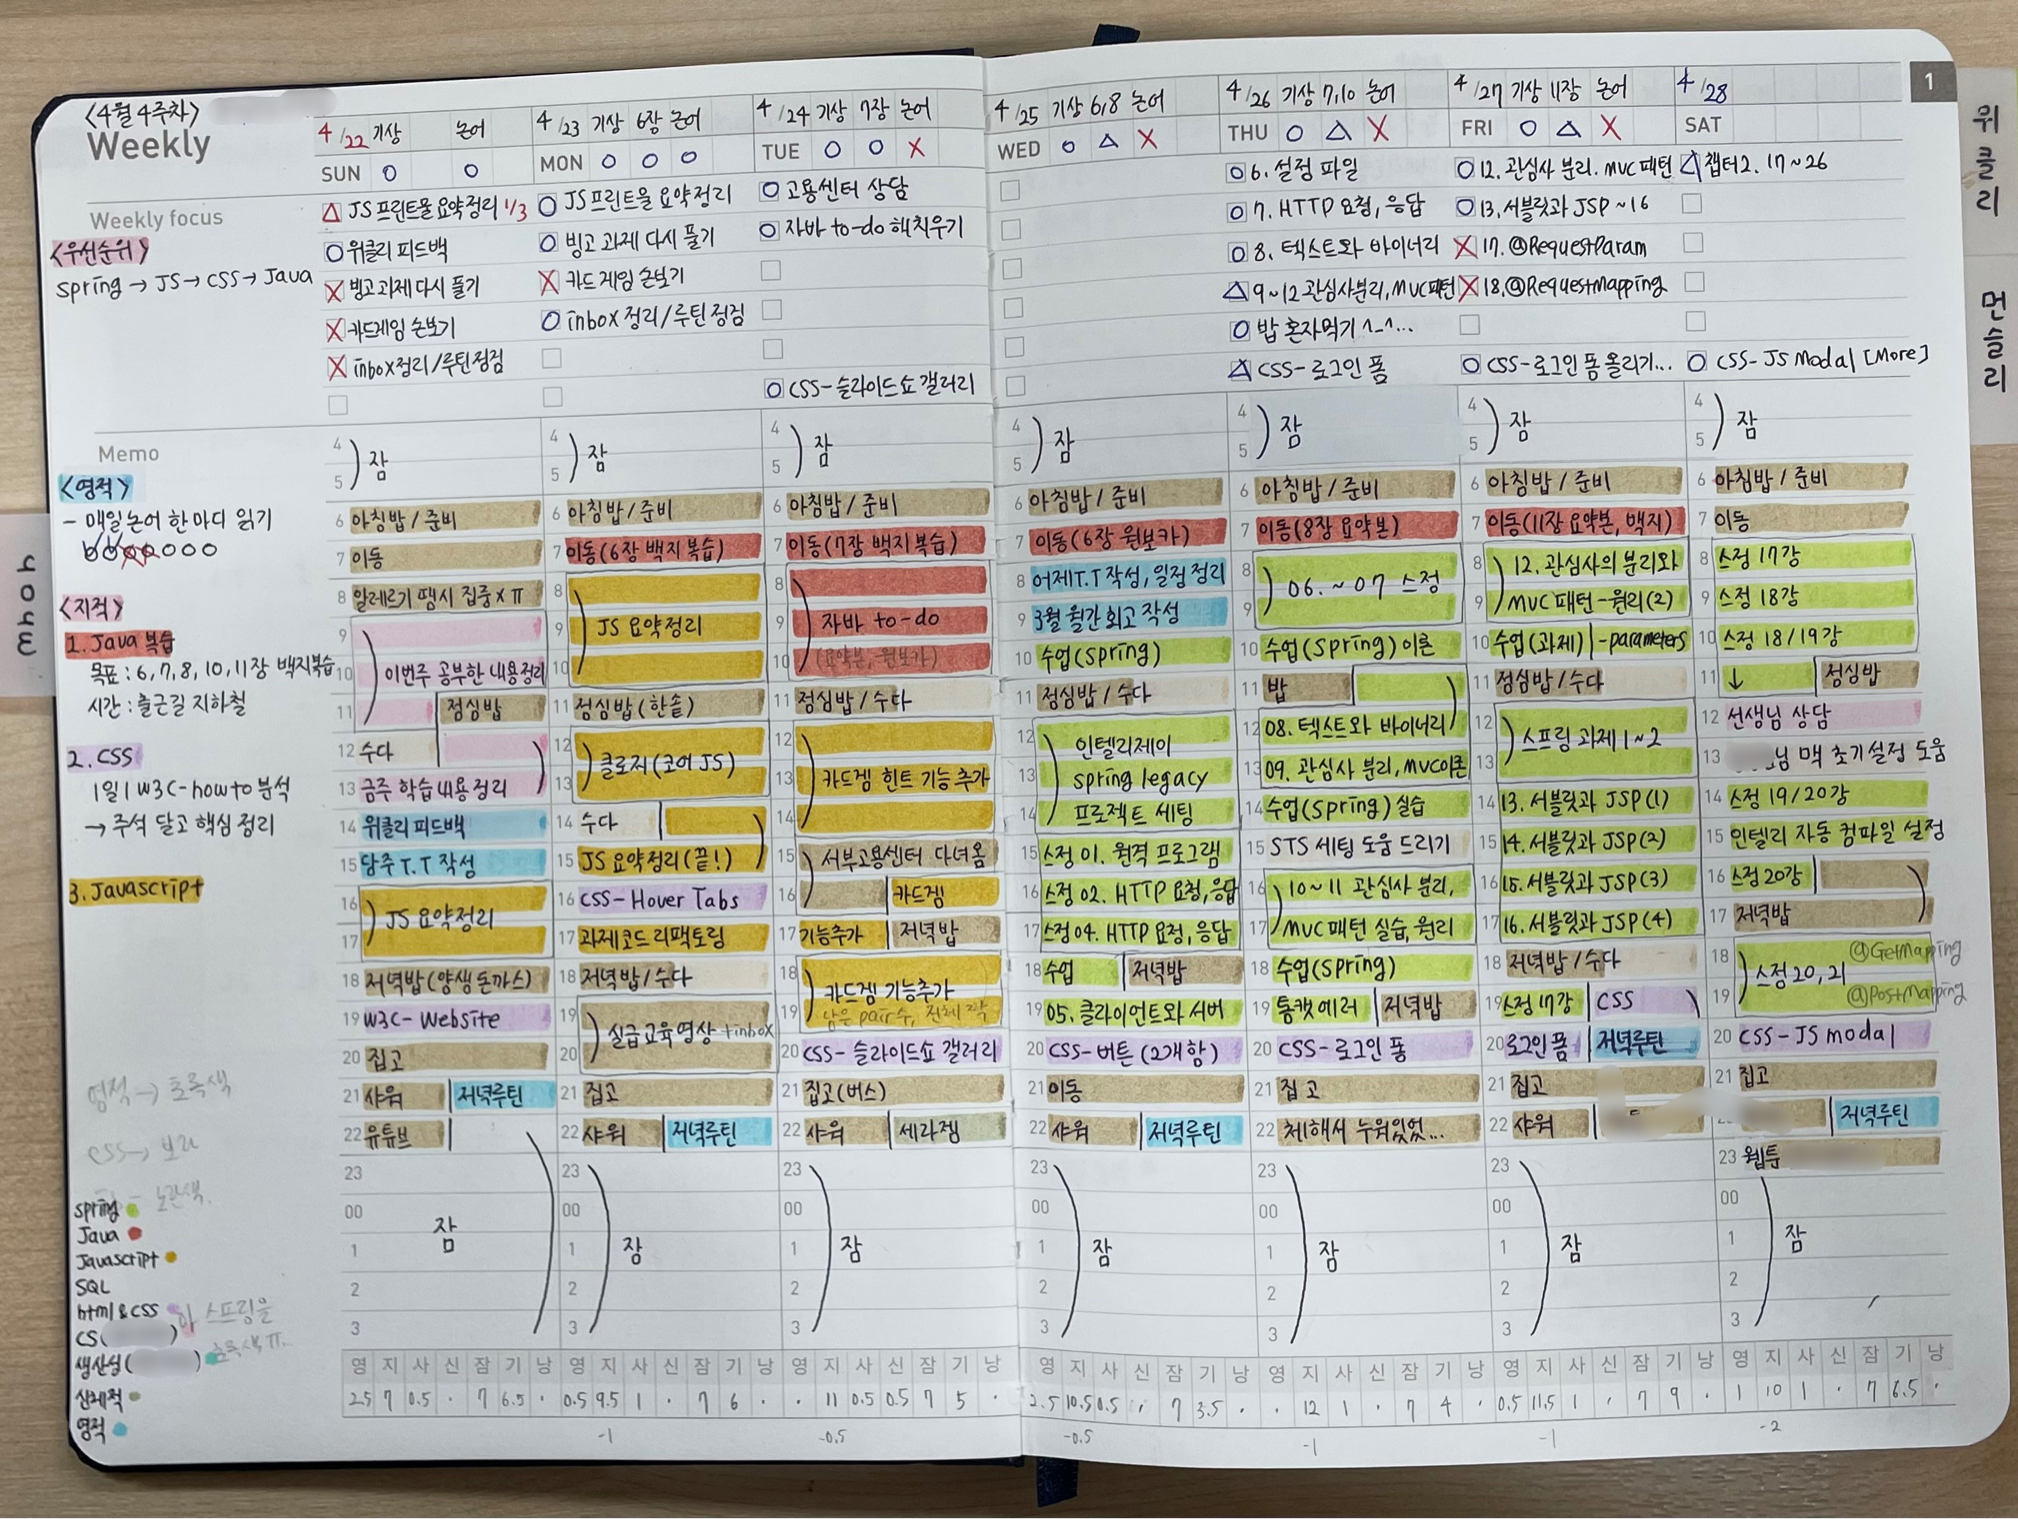 <4월 4주차>
Weekly
1
위클리
먼슬리
4/22 기상 논어
SUN O O
4/23 기상 6장 논어
MON O O O
4/24 기상 7장 논어
TUE O O X
4/25 기상 6,8 논어
WED O △ X
4/26 기상 7,10 논어
THU O △ X
4/27 기상 11장 논어
FRI O △ X
4/28
SAT
Weekly focus
<우선순위>
spring → JS → CSS → Java
△ JS 프린트물 요약정리 1/3
O 위클리 피드백
X 빙고과제 다시 풀기
X 카드게임 손보기
X inbox정리/루틴정검
O JS프린트물 요약정리
O 빙고 과제 다시 풀기
X 카드게임 손보기
O inbox 정리/루틴정검
O 고용센터 상담
O 자바 to-do 해치우기
O CSS-슬라이드쇼 갤러리
O 6. 설정 파일
O 7. HTTP 요청, 응답
O 8. 텍스트와 바이너리
△ 9~12 관심사분리, MVC패턴
O 밥 혼자먹기 ^_^...
△ CSS-로그인 폼
O 12. 관심사 분리. MVC 패턴
O 13. 서블릿과 JSP ~16
X 17. @RequestParam
X 18. @RequestMapping
O CSS-로그인 폼 올리기...
△ 챕터2. 17~26
O CSS-JS Modal [More]
Memo
<영적>
- 매일 논어 한마디 읽기
<지적>
1. Java 복습
목표 : 6, 7, 8, 10, 11장 백지복습
시간 : 출근길 지하철
2. CSS
1일1 W3C-howto 분석
→ 주석 달고 핵심 정리
3. Javascript
영적 → 초록색
CSS → 보라
노란색.
spring
Java
Javascript
SQL
html&css
CS( )
생산성( )
신체적
영적
아 스프링을
초록색 ㅠ..
4
5 잠
6 아침밥 / 준비
7 이동
8 알레르기 땜시 집중 x ㅠ
9
10 이번주 공부한 내용정리
11 정심밥
12 수다
13 금주 학습 내용 정리
14 위클리 피드백
15 담주 T.T 작성
16 JS 요약정리
17
18 저녁밥(양생돈까스)
19 W3C-Website
20 집고
21 샤워 저녁루틴
22 유튜브
23
00 잠
1
2
3
4
5 잠
6 아침밥 / 준비
7 이동(6장 백지복습)
8
9 JS 요약정리
10
11 정심밥(한솥)
12 클로저(코어 JS)
13
14 수다
15 JS 요약정리(끝!)
16 CSS-Hover Tabs
17 과제코드 리팩토링
18 저녁밥/수다
19 실급교육영상 +inbox
20
21 집고
22 샤워 저녁루틴
23
00
1 잠
2
3
4
5 잠
6 아침밥 / 준비
7 이동(7장 백지복습)
8
9 자바 to-do
10 (요약본, 원보카)
11 정심밥/수다
12
13 카드겜 힌트 기능 추가
14
15 서부고용센터 다녀옴
16 카드겜
17 기능추가 저녁밥
18 카드겜 기능추가
19 남은 pair수, 전체 짝
20 CSS-슬라이드쇼 갤러리
21 집고(버스)
22 샤워 세라젬
23
00
1 잠
2
3
4
5 잠
6 아침밥 / 준비
7 이동(6장 원보카)
8 어제T.T 작성, 일정 정리
9 3월 월간 회고 작성
10 수업(spring)
11 정심밥/수다
12 인텔리제이
13 spring legacy
14 프로젝트 세팅
15 스정 01. 원격 프로그램
16 스정 02. HTTP 요청, 응답
17 스정 04. HTTP 요청, 응답
18 수업 저녁밥
19 05. 클라이언트와 서버
20 CSS-버튼(2개함)
21 이동
22 샤워 저녁루틴
23
00
1 잠
2
3
4
5 잠
6 아침밥 / 준비
7 이동(8장 요약본)
8 06. ~ 07 스정
9
10 수업(spring) 이론
11 밥
12 08. 텍스트와 바이너리
13 09. 관심사 분리, MVC이론
14 수업(spring) 실습
15 STS 세팅 도움 드리기
16 10~11 관심사 분리,
17 MVC 패턴 실습, 원리
18 수업(spring)
19 톰캣 에러 저녁밥
20 CSS-로그인 폼
21 집고
22 체해서 누워있었...
23
00
1 잠
2
3
4
5 잠
6 아침밥 / 준비
7 이동(11장 요약본, 백지)
8 12. 관심사의 분리와
9 MVC 패턴-원리(2)
10 수업(과제) -parameters
11 정심밥/수다
12 스프링 과제 1~2
13
14 13. 서블릿과 JSP(1)
15 14. 서블릿과 JSP(2)
16 15. 서블릿과 JSP(3)
17 16. 서블릿과 JSP(4)
18 저녁밥/수다
19 스정 17강 CSS
20 로그인 폼 저녁루틴
21 집고
22 샤워
23
00
1 잠
2
3
4
5 잠
6 아침밥 / 준비
7 이동
8 스정 17강
9 스정 18강
10 스정 18/19강
11 ↓ 정심밥
12 선생님 상담
13 님 맥 초기설정 도움
14 스정 19/20강
15 인텔리 자동 컴파일 설정
16 스정 20강
17 저녁밥
18 @GetMapping
스정 20, 21
19 @PostMapping
20 CSS-JS modal
21 집고
저녁루틴
23 웹툰
00
1 잠
2
3
영 지 사 신 잠 기 낭
2.5 7 0.5 · 7 6.5 ·
영 지 사 신 잠 기 낭
0.5 9.5 1 · 7 6 ·
-1
영 지 사 신 잠 기 낭
· 11 0.5 0.5 7 5 ·
-0.5
영 지 사 신 잠 기 낭
2.5 10.5 0.5 · 7 3.5 ·
-0.5
영 지 사 신 잠 기 낭
· 12 1 · 7 4 ·
-1
영 지 사 신 잠 기 낭
0.5 11.5 1 · 7 9 ·
-1
영 지 사 신 잠 기 낭
1 10 1 · 7 6.5 ·
-2